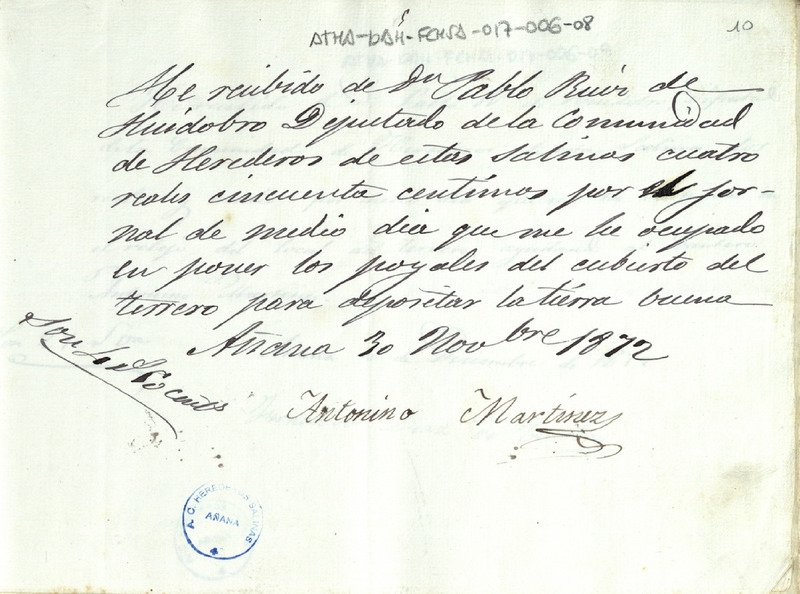 ATHA-DAH-FCHSA-017-006-08
10
He recibido de Dn Pablo Ruiz de
Huidobro Diputado de la Comunidad
de Herederos de estas Salinas cuatro
reales cincuenta centimos por el jor-
nal de medio dia que me he ocupado
en poner los poyales del cubierto del
terrero para depositar la tierra buena
Añana 30 Novbre 1872
Son 4 rs 50 cents
Antonino Martinez
A. C. HEREDEROS SALINAS
AÑANA